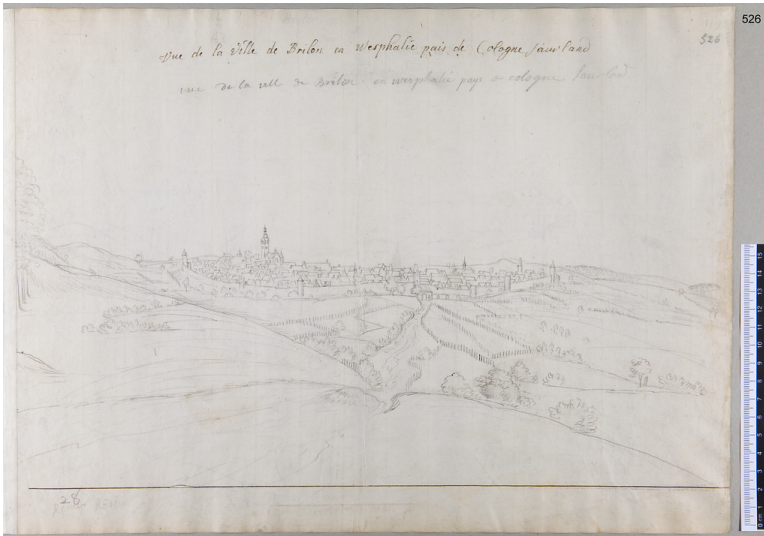 526
526
Vue de la Ville de Brilon en Wesphalie païs de Cologne saurland
vue de la vill de Brilon en wesphalie pays de cologne saurland
28